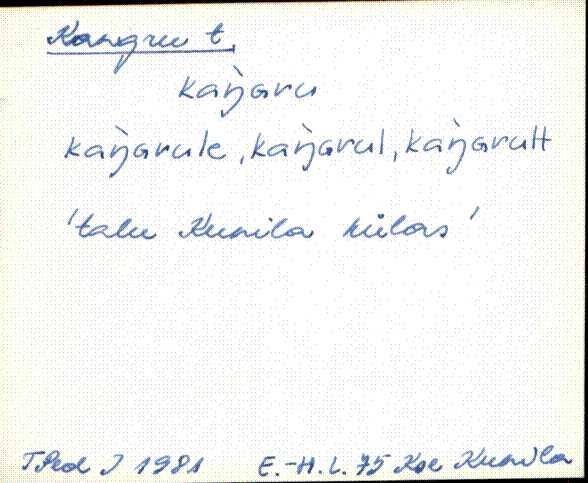 Kangru t.
kàŋaru
kàŋarule, kàŋarul, kàŋarult
'talu Kunila külas'
TRÜ J 1981 E.-H. L. 75 Koe Kunila